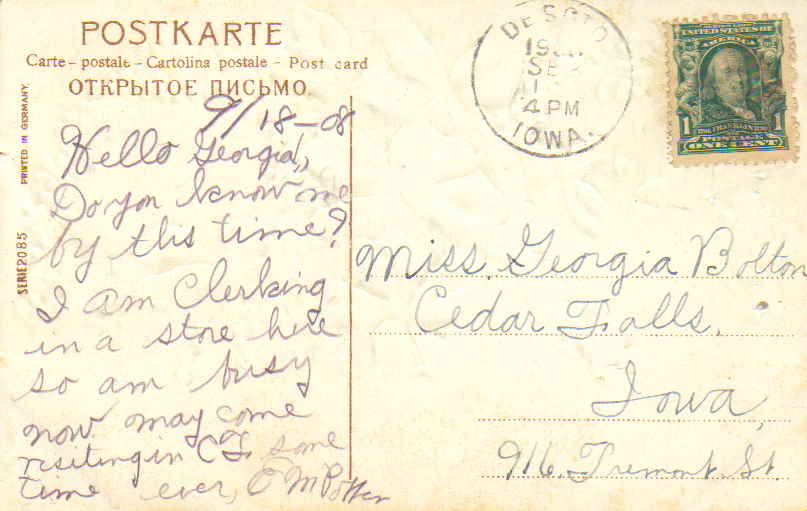 POSTKARTE
Carte - postale - Cartolina postale - Post card
ОТКРЫТОЕ ПИСЬМО.
PRINTED IN GERMANY.
SERIE 2085
9/18-08
Hello Georgia,,
Do you know me
by this time?
I am Clerking
in a store here
so am busy
now may come
visiting in C F some
time ever, O M Potter
DE SOTO
SE
4 PM
IOWA.
UNITED STATES OF
AMERICA
1 1
POSTAGE
ONE CENT
Miss. Georgia Bolton
Cedar Falls.
Iowa,
916. Tremont. St.